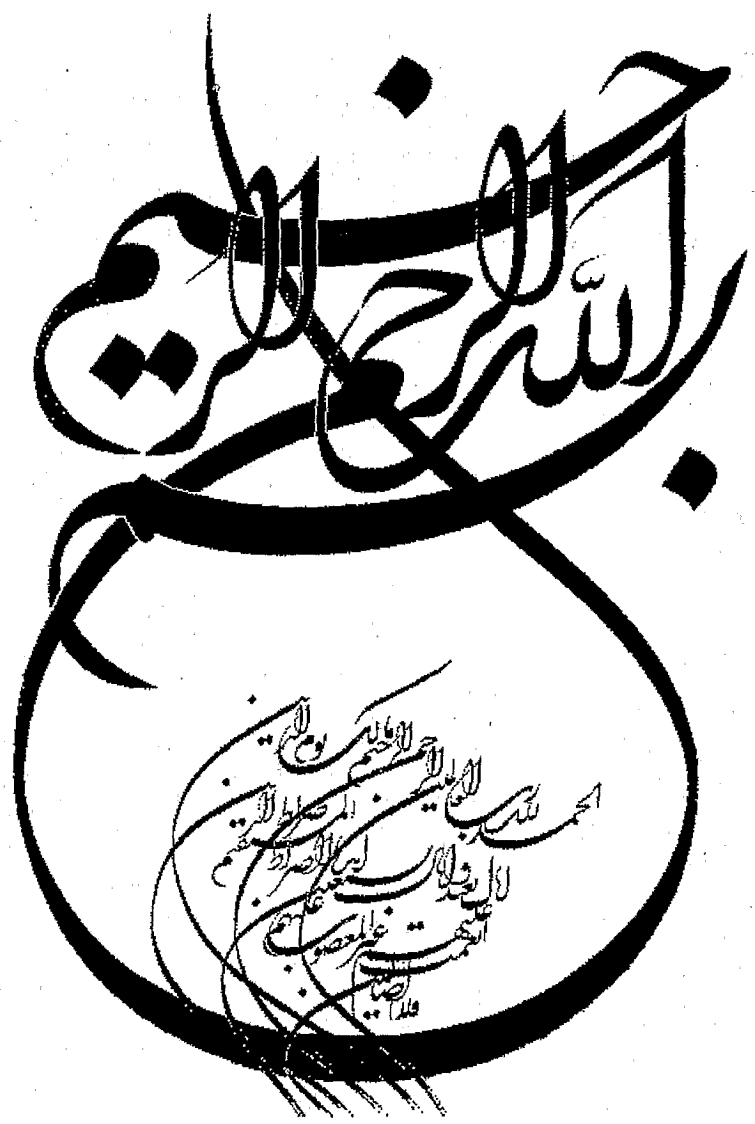 بسم الله الرحمن الرحيم
الحمد لله رب العالمين
الرحمن الرحيم
مالك يوم الدين
اهدنا الصراط المستقيم
صراط الذين
أنعمت عليهم
غير المغضوب عليهم
ولا الضالين